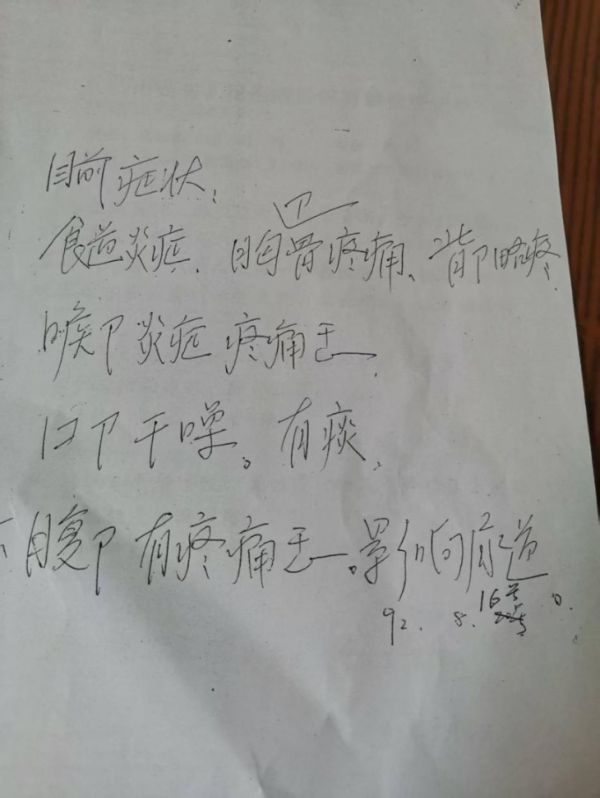 目前症状：
食道炎症、胸骨疼痛、背卩略疼.
喉卩炎症 疼痛
口卩干噪。有痰、
下腹卩 有疼痛 。影响尿道。
92. 8. 16号